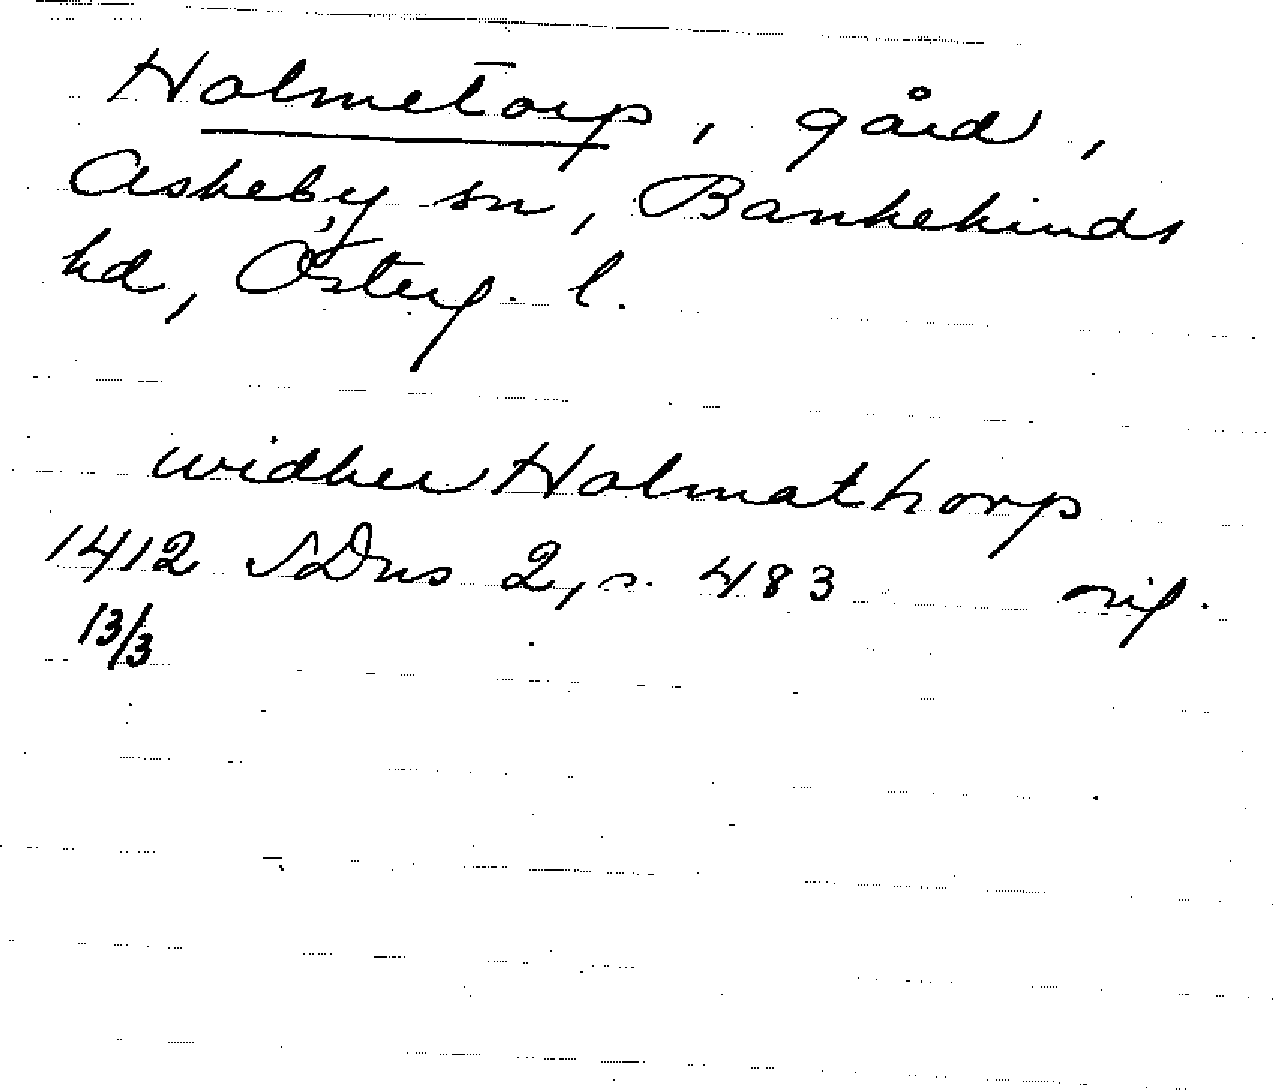 Holmetorp, gård,
Askeby sn, Bankekinds
hd, Österg. l.
widher Holmathorp
1412 SDns 2, s. 483 orig.
13/3